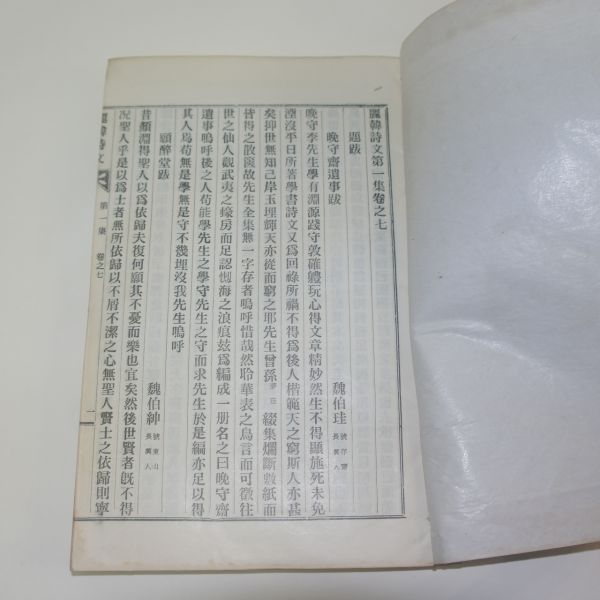 麗韓詩文第一集卷之七
題跋
晚守齋遺事跋
魏伯珪 號存齋 長興人
晚守李先生學有淵源踐守敦確軆玩心得文章精妙然生不得顯施死未免
湮沒平日所著學書詩文又爲回祿所禍不得爲後人楷範天之窮斯人亦甚
矣抑世無知己岸玉埋輝天亦從而窮之耶先生曾孫 綴集爛斷敗紙而
皆得之散逸故先生全集無一字存者嗚呼惜哉然聆華表之鳥言而可徵往
世之仙人觀武夷之蠔房而足認懷海之浪痕玆爲編成一册名之曰晚守齋
遺事嗚呼後之人苟能學先生之學守先生之守而求先生於是編亦足以得
其人焉苟無是學無是守不幾埋沒我先生嗚呼
顧醉堂跋
魏伯紳 號東山 長興人
昔顏淵得聖人以爲依歸夫復何顧其不憂而樂也宜矣然後世賢者旣不得
况聖人乎是以爲士者無所依歸以不屑不潔之心無聖人賢士之依歸則寧
麗韓詩文
第一集
卷之七
一